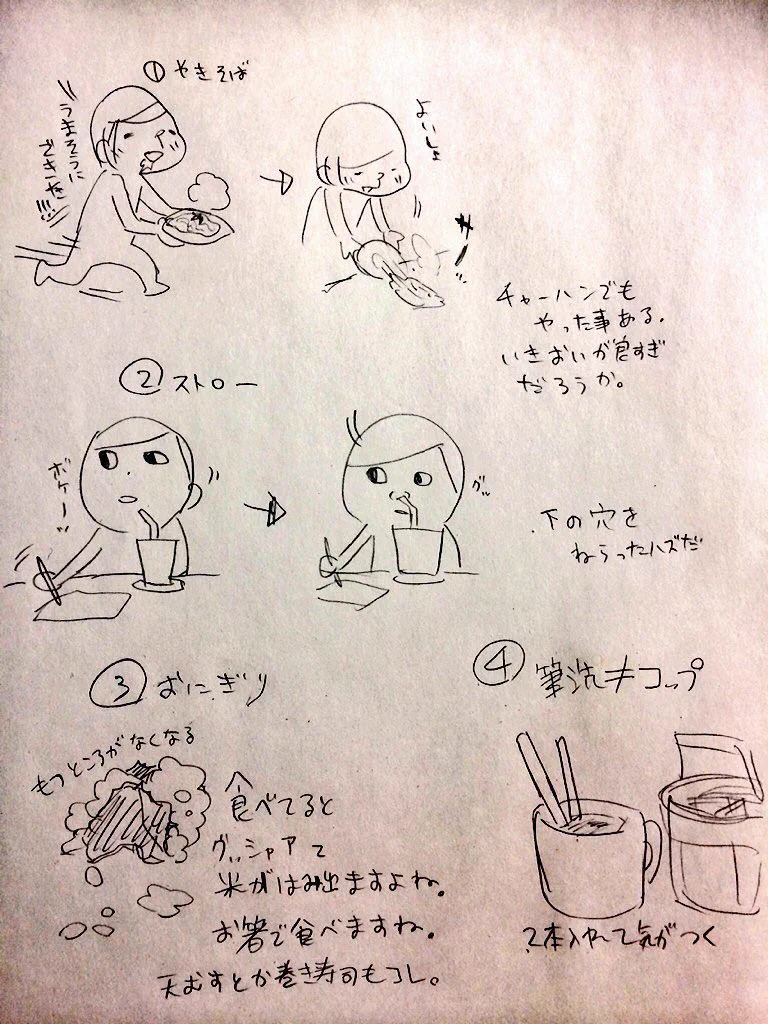 ① やきそば
うまそうに
できた!!!
よいしょ
チャーハンでも
やった事ある。
いきおいが良すぎ
だろうか。
② ストロー
ボケーッ
グッ
下の穴を
ねらったハズだ
③ おにぎり
もつところがなくなる
食べてると
グッシャアて
米がはみ出ますよね。
お箸で食べますね。
天むすとか巻き寿司もコレ。
④ 筆洗≠コップ
2本入れて気がつく